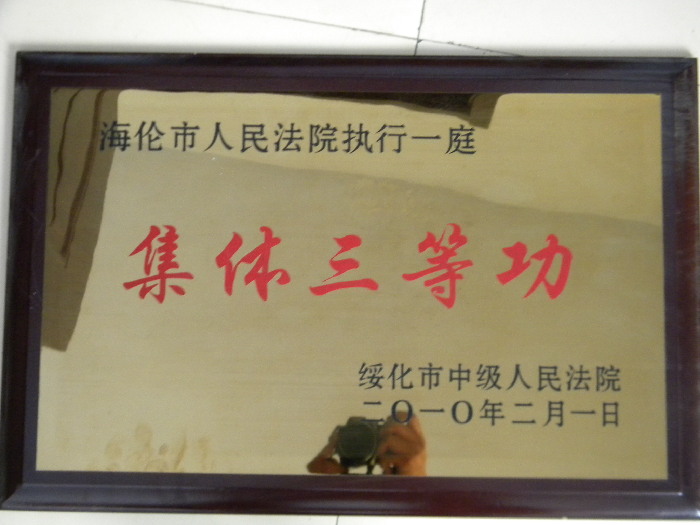 海伦市人民法院执行一庭
集体三等功
绥化市中级人民法院
二〇一〇年二月一日